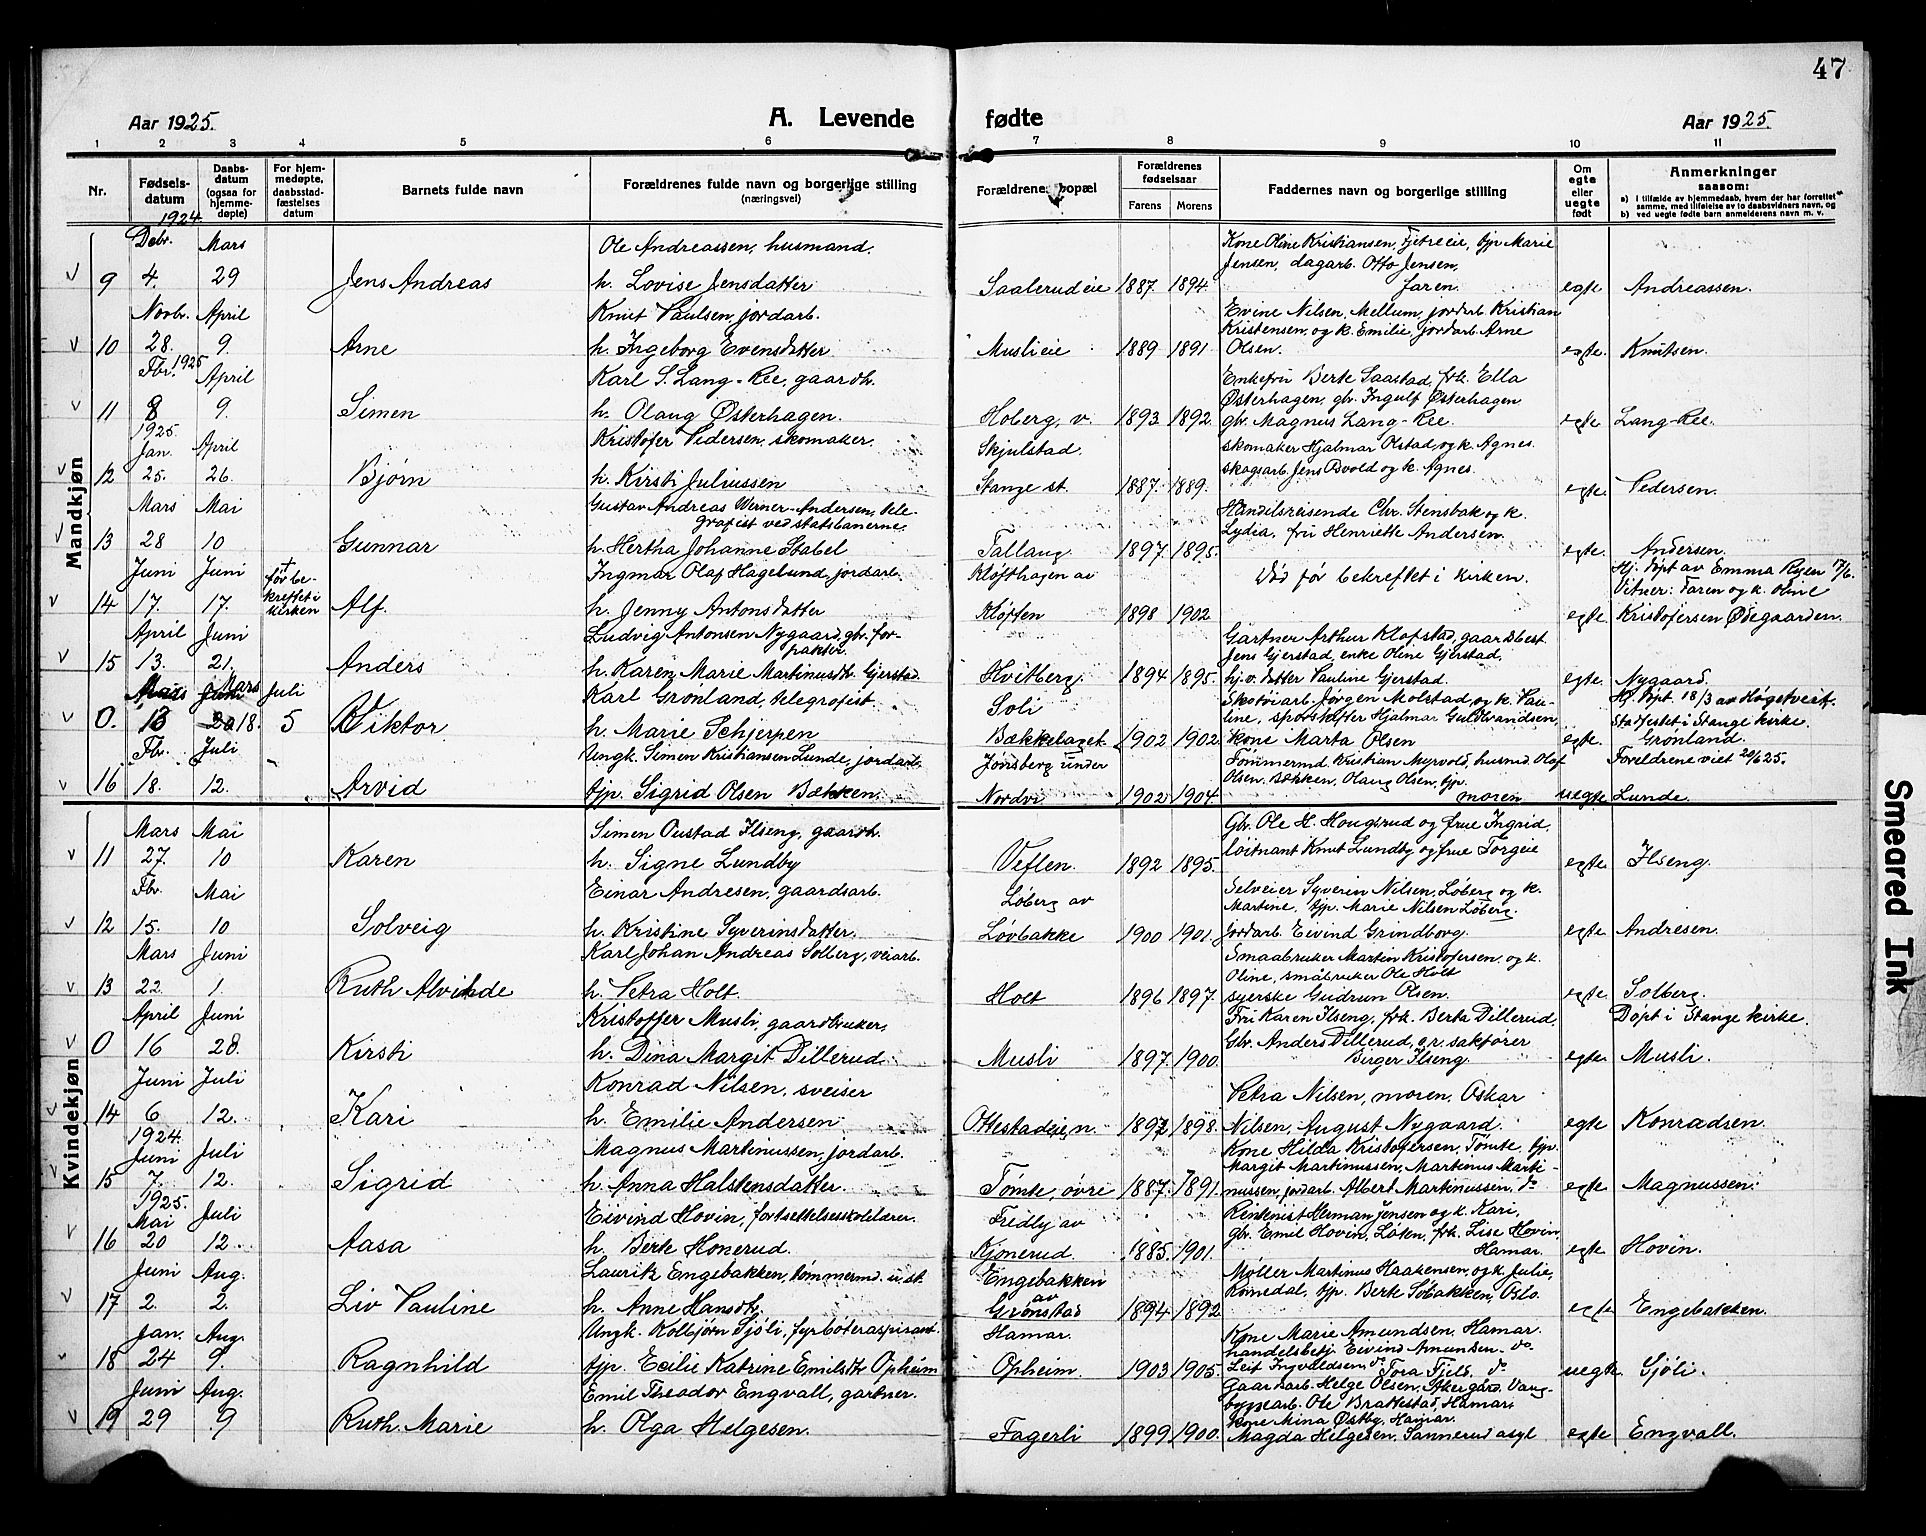 47
Aar 1925.
A. Levende fødte
Aar 1925.
1 2 3 4 5 6 7 8 9 10 11
Nr.
Fødsels-datum
Daabs-datum (ogsaa for hjemme-døpte)
For hjem-medøpte, daabsstad-fæstelses datum
Barnets fulde navn
Forældrenes fulde navn og borgerlige stilling (næringsvei)
Forældrenes bopæl
Forældrenes fødselsaar
Farens Morens
Faddernes navn og borgerlige stilling
Om egte eller uegte født
Anmerkninger saasom:
a) i tilfælde av hjemmedaab, hvem der har forrettet samme, med tilføielse av to daabsvidners navn, og
b) ved uegte fødte barn anmelderens navn m. v.
Mandkjøn
1924
Debr. Mars Ole Andreassen, husmand. Kone Oline Kristiansen, Fjetreeie, pp. Marie
Jensen, dagarb. Otto Jensen,
9 4. 29 Jens Andreas h. Lovise Jensdatter Saalerudeie 1887. 1894. Jaren. egte Andreassen.
Novbr. April Knut Paulsen, jordarb. Evine Nilsen, Mellum, jordarb. Kristian
Kristensen, og k. Emilie, jordarb. Arne
10 28. 9. Arne h. Ingeborg Evensdatter Muslieie 1889 1891 Olsen. egte. Knutsen.
Fbr. 1925 April Karl S. Lang-Ree, gaardbr. Enkefru Berte Saastad, frk. Ella
Østerhagen, gbr. Ingulf Østerhagen
11 8 9. Simen h. Olaug Østerhagen. Hoberg, v. 1893 1892. gbr. Magnus Lang-Ree. egte Lang-Ree.
1925. Jan. April Kristofer Pedersen, skomaker. Skjulstad. skomaker Hjalmar Olstad og k. Agnes.
skogsarb. Jens Bvold og k. Agnes.
12 25. 26. Bjørn h. Kirsti Juliussen Stange st. 1887. 1889. egte. Pedersen.
Mars Mai Gustav Andreas Werner-Andersen, tele-
grafist ved statsbanerne. Handelsreisende Chr. Stensbak og k.
Lydia, fru Henriette Andersen.
13 28 10 Gunnar h. Hertha Johanne Stabel Tallang. 1897. 1895. egte. Andersen.
Juni Juni + før be-kreftet i kirken Ingmar Olaf Hagelund, jordarb. Kløfthagen av Død før bekreftet i kirken. Hj. døpt av Emma Ryen 17/6.
Vitner: Faren og k. Oline
14 17. 17. Alf. h. Jenny Antonsdatter Kløften 1898 1902 egte Kristofersen Ødegaarden.
April Juni Ludvig Antonsen Nygaard, gbr. for-
pakter. Gartner Arthur Klofstad, gaardbest.
Jens Gjerstad, enke Oline Gjerstad,
15 13. 21. Anders h. Karen Marie Martinusdtr. Gjerstad Hvitberg. 1894 1895. hj.v. datter Pauline Gjerstad. egte. Nygaard.
Mars Mars Juli Karl Grønland, telegrafist. Soli Skotøiarb. Jørgen Molstad, og k. Pau-
line, sporskifter Hjalmar Guldbrandsen, Hj. døpt 18/3 av
Stadfestet i Stange kirke.
0. 13 18. 5 Viktor h. Marie Schjerpen Bækkelaget. 1902 1902. kone Marta Olsen egte. Grønland.
Fbr. Juli Ungk. Simen Kristiansen Lunde, jordarb. Jønsberg under Tømmermd. Kristian Myrvold, husmd. Olaf
Olsen, Bækken, Olaug Olsen, pp. Foreldrene viet 20/6 25.
16 18. 12. Arvid pp. Sigrid Olsen Bækken. Nordvi 1902 1904. moren uegte Lunde.
Kvindekjøn
Mars Mai Simen Oustad Ilseng, gaardbr. Gbr. Ole H. Hougsrud og frue Ingrid,
11 27. 10 Karen h. Signe Lundby Veflen. 1892 1895. løitnant Knut Lundby og frue Torgeie egte Ilseng.
Fbr. Mai Einar Andresen, gaardsarb. Løberg av Selveier Syverin Nilsen, Løberg og k.
Martine, pp. Marie Nilsen Løberg.
12 15. 10 Solveig h. Kristine Syverinsdatter. Løvbakke 1900 1901. Jordarb. Eivind Grindborg. egte Andresen.
Mars Juni Karl Johan Andreas Solberg, veiarb. Smaabruker Martin Kristofersen, og k.
Oline, småbruker Ole Holt
13 22. 1. Ruth Alvilde h. Petra Holt. Holt 1896 1897. syerske Gudrun Olsen. egte. Solberg.
April Juni Kristoffer Musli, gaardbruker. Fru Karen Ilseng, frk. Berta Dillerud, Døpt i Stange kirke.
Gbr. Anders Dillerud, o.r. sakfører
0 16 28. Kirsti h. Dina Margit Dillerud. Musli 1897. 1900. Birger Ilseng egte Musli.
Juni Juli Konrad Nilsen, sveiser Petra Nilsen, moren, Oskar
14 6 12. Kari h. Emilie Andersen Ottestadeie, n. 1897 1898. Nilsen, August Nygaard. egte Konradsen.
1924. Juni Juli Magnus Martinussen, jordarb. Kone Hilda Kristofersen, Tømte, pp.
Margit Martinussen, Martinus Marti-
15 7. 12. Sigrid h. Anna Halstensdatter. Tømte, øvre 1887. 1891. nussen, jordarb. Albert Martinussen. do egte Magnussen.
1925. Mai Juli Eivind Hovin, fortsettelsesskolelærer. Fredly av Rentenist Herman Jensen og k. Kari,
gbr. Emil Hovin, Løken, frk. Lise Hovin
16 20 12. Aasa h. Berte Honerud. Kjonerud. 1885. 1901. Hamar. egte Hovin.
Juni Aug. Lauritz Engebakken, tømmermd. Engebakken av Møller Martinus Haakensen, og k. Julie,
Romedal, pp. Berte Søbakken, Oslo.
17 2. 2. Liv Pauline h. Anne Hansdtr. Grønstad 1894 1892 egte Engebakken.
Jan. Aug. Ungk. Kolbjørn Sjøli, fyrbøteraspirant. Hamar. Kone Marie Amundsen, Hamar.
handelsbetj. Eivind Amunsen. do
18 24 9. Ragnhild pp. Ecilie Katrine Emilsdtr. Opheim Opheim 1903 1905. Leif Ingvaldsen do Tora Fjeld. do uegte Sjøli.
Juni Aug. Emil Theodor Engvall, gartner. Gaardsarb. Helge Olsen, Akergård, Vang.
byggearb. Ole Brattestad, Hamar,
kone Mina Østby, Hamar.
19 29 9 Ruth Marie h. Olga Helgesen. Fagerli 1899 1900. Magda Helgesen, Sannerud asyl egte Engvall.
Smeared Ink